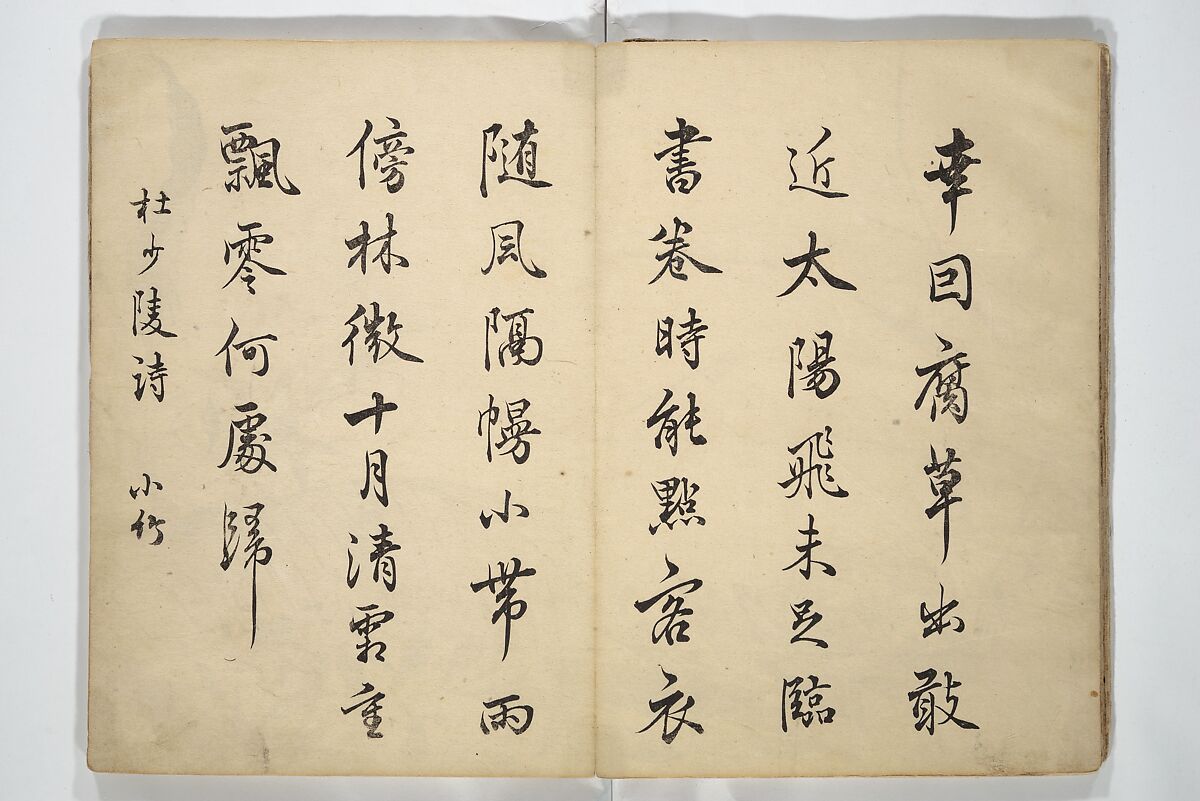 幸囙腐草出敢
近太陽飛未足臨
書卷時能點客衣
随風隔幌小帯雨
傍林微十月清霜重
飄零何處歸
杜少陵詩 小竹